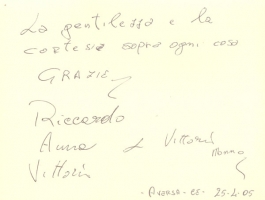 La gentilezza e la
cortesia sopra ogni cosa
GRAZIE
Riccardo
Anna & Vittorio
Nonno
Vittorio
- Aversa - CE - 25-4-05